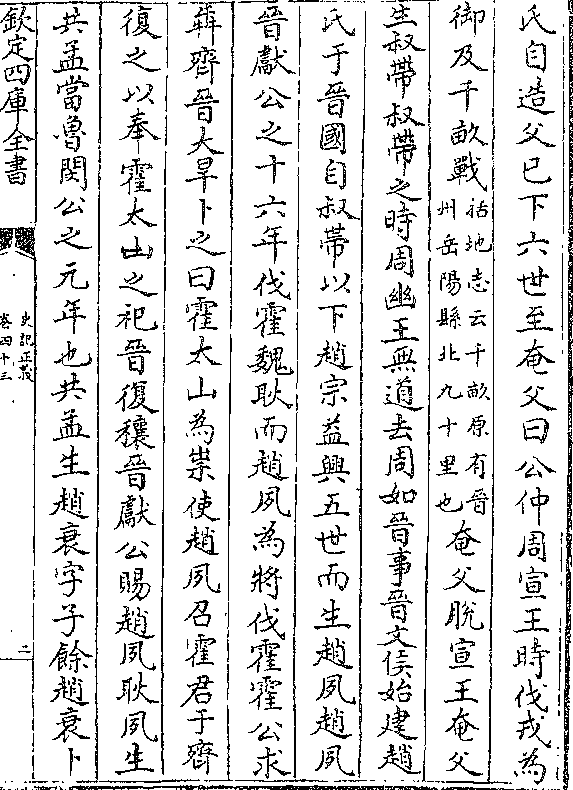 氏自造父已下六世至奄父曰公仲周宣王時伐戎為
御及千畝戰
括地志云千畝原有晉
州岳陽縣北九十里也
奄父脫宣王奄父
生叔帶叔帶之時周幽王無道去周如晉事晉文侯始建趙
氏于晉國自叔帶以下趙宗益興五世而生趙夙趙夙
晉獻公之十六年伐霍魏耿而趙夙為將伐霍霍公求
犇齊晉大旱卜之曰霍太山為祟使趙夙召霍君于齊
復之以奉霍太山之祀晉復穰晉獻公賜趙夙耿夙生
共孟當魯閔公之元年也共孟生趙衰字子餘趙衰卜
欽定四庫全書
史記正義
卷四十三
二